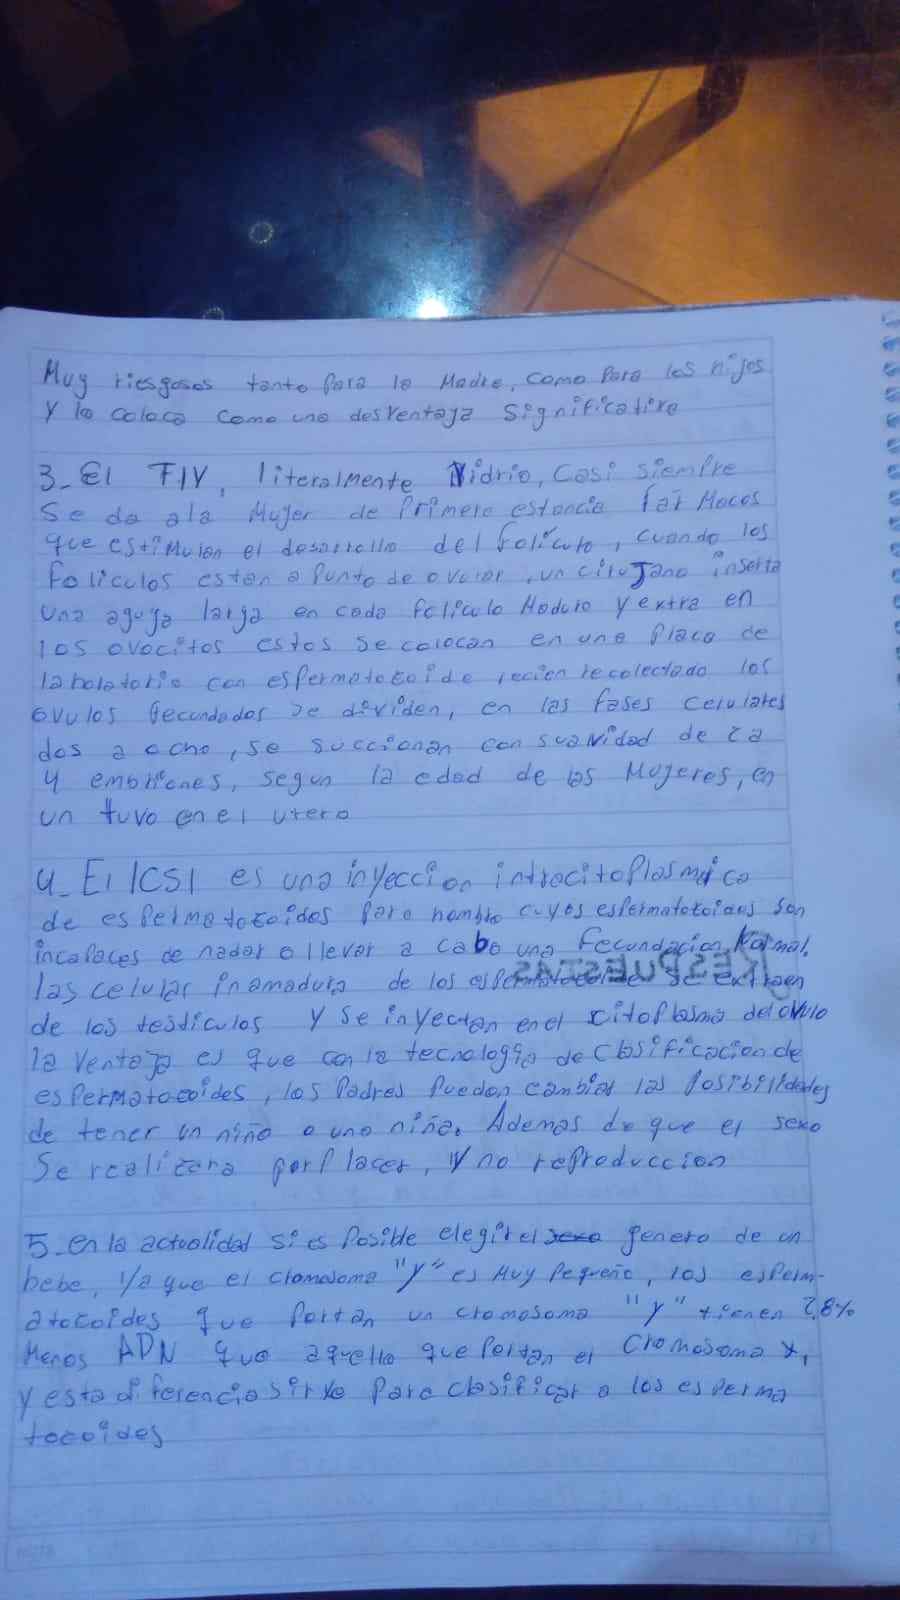 Muy riesgosos tanto para la Madre, como para los hijos
y la coloca como una desventaja significativa
3_ El FIV, literalmente Vidrio, casi siempre
se da ala Mujer de primera estancia farMacos
que estiMulan el desarrollo del foliculo, cuando los
foliculos estan a punto de ovular, un cirujano inserta
una aguja larga en cada foliculo Maduro y extra en
los ovocitos estos se colocan en una placa de
laboratorio con espermatozoide recien recolectado los
ovulos fecundados se dividen, en las fases celulares
dos a ocho, se succionan con suavidad de 2 a
4 embriones, segun la edad de las Mujeres, en
un tuvo en el utero
4_ El ICSI es una inyeccion intracitoplasmica
de espermatozoides para hombre cuyos espermatozoides son
incapaces de nadar o llevar a cabo una fecundacion Normal.
RESPUESTAS
las celular inamadura de los espermatozoides se extraen
de los testiculos y se inyectan en el citoplasma del ovulo
la ventaja es que con la tecnologia de clasificacion de
espermatozoides, los padres pueden cambiar las posibilidades
de tener un niño o una niña. Ademas de que el sexo
Se realizara por placer, y no reproduccion
5_ en la actualidad si es posible elegir el sexo genero de un
bebe, ya que el cromosoma "y" es Muy pequeño, los esperm-
atozoides que portan un cromosoma "y" tienen 2,8%
Menos ADN que aquello que portan el cromosoma x,
y esta diferencia sirve para clasificar a los esperma
tozoides